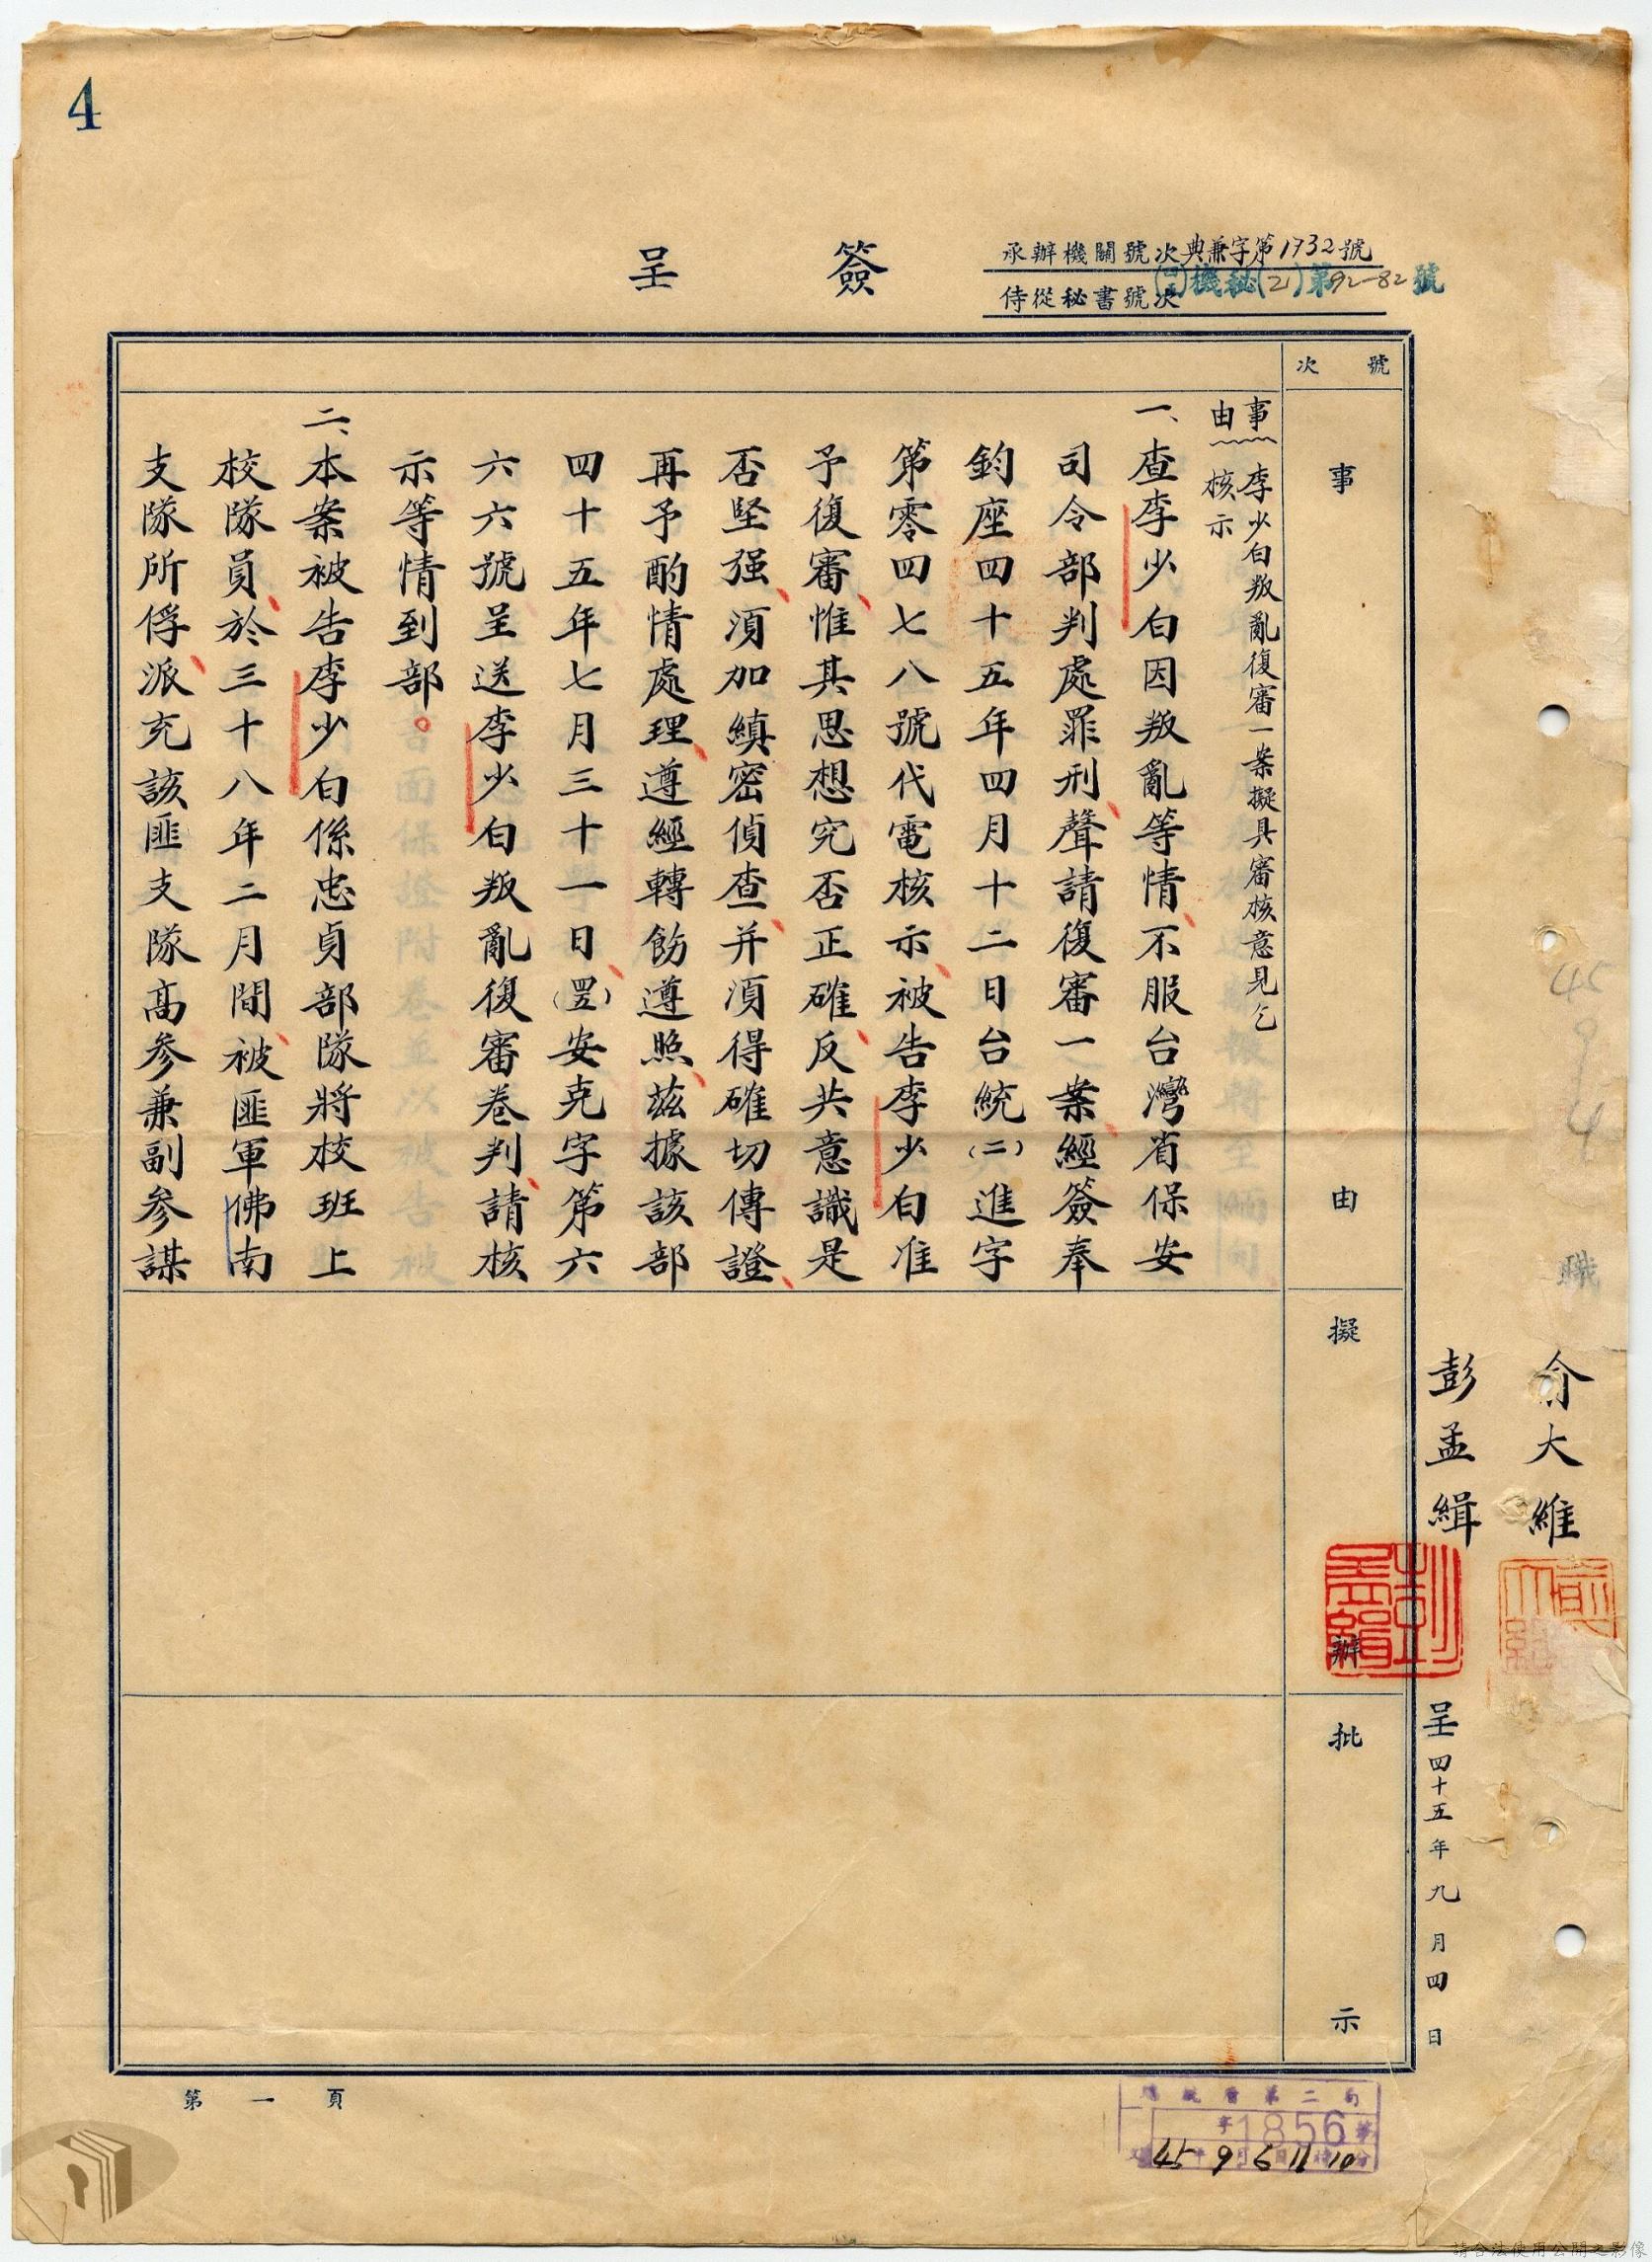 4
簽呈
承辦機關號次典兼字第1732號
侍從秘書號次機秘(乙)第92-82號
號次
事由
擬辦
批示
事由 李少白叛亂復審一案擬具審核意見乞
核示
一、查李少白因叛亂等情不服台灣省保安
司令部判處罪刑聲請復審一案經簽奉
鈞座四十五年四月十二日台統(二)進字
第零四七八號代電核示被告李少白准
予復審惟其思想究否正確反共意識是
否堅强須加縝密偵查并須得確切傳證
再予酌情處理遵經轉飭遵照茲據該部
四十五年七月三十一日(罡)安克字第六
六六號呈送李少白叛亂復審卷判請核
示等情到部。
二、本案被告李少白係忠貞部隊將校班上
校隊員於三十八年二月間被匪軍佛南
支隊所俘派充該匪支隊高參兼副參謀
職
俞大維
彭孟緝
呈四十五年九月四日
4594
第一頁
總統府第二局
字1856號
45年9月6日11時10分
請合法使用公開之影像